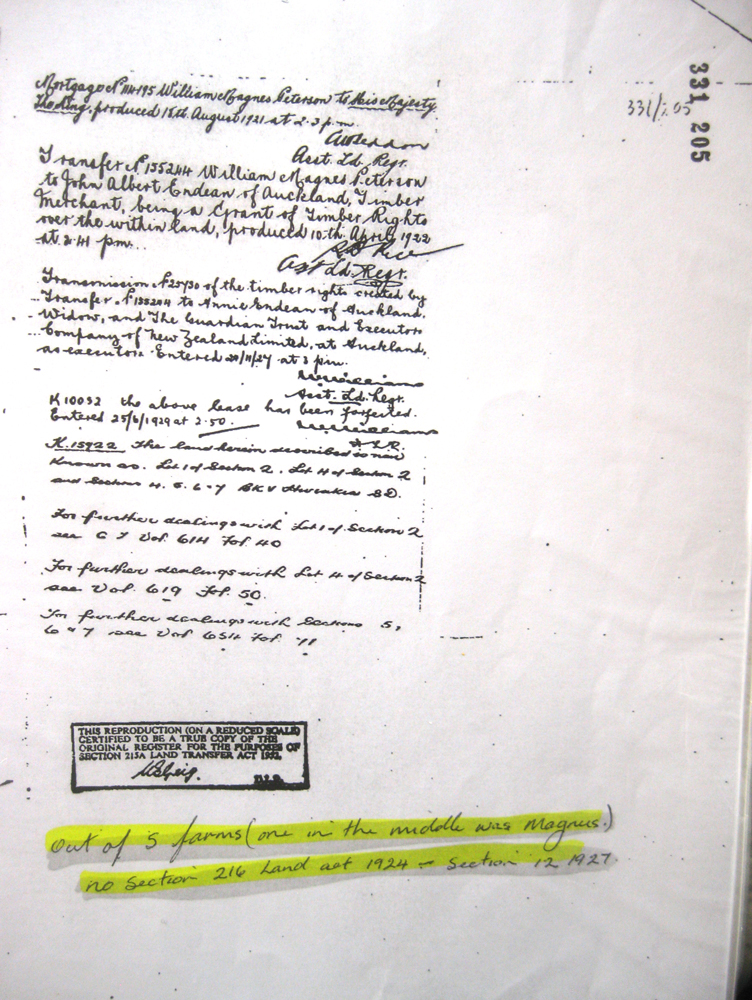 331 205
331/205
Mortgage No 114195 William Magnes Peterson to His Majesty
The King, produced 18th August 1921 at 2.3 pm
Asst. Ld. Regr.
Transfer No 155244 William Magnes Peterson
to John Albert Endean of Auckland, Timber
Merchant, being a Grant of Timber Rights
over the within land, produced 10th April 1922
at 2.41 pm.
Asst Ld. Regr.
Transmission No 25730 of the timber rights created by
Transfer No 155244 to Annie Endean of Auckland,
Widow, and The Guardian Trust and Executors
Company of New Zealand Limited, at Auckland,
as executors Entered at 3 pm.
Asst. Ld. Regr.
K10032 the above lease has been forfeited.
Entered 25/6/1929 at 2.50.
A.L.R.
K.15922 The land herein described is now
Known as Lot 1 of Section 2, Lot 4 of Section 2
and Sections 4. 5. 6 & 7 BK V S.D.
For further dealings with Lot 1 of Section 2
see C T Vol 614 Fol 40
For further dealings with Lot 4 of Section 2
see Vol. 619 Fol. 50.
For further dealings with Sections 5,
6 & 7 see Vol 654 Fol 71
THIS REPRODUCTION (ON A REDUCED SCALE)
CERTIFIED TO BE A TRUE COPY OF THE
ORIGINAL REGISTER FOR THE PURPOSES OF
SECTION 215A LAND TRANSFER ACT 1952.
D.L.R.
Out of 5 farms (one in the middle was Magnus.)
no Section 216 Land act 1924 - Section 12 1927.